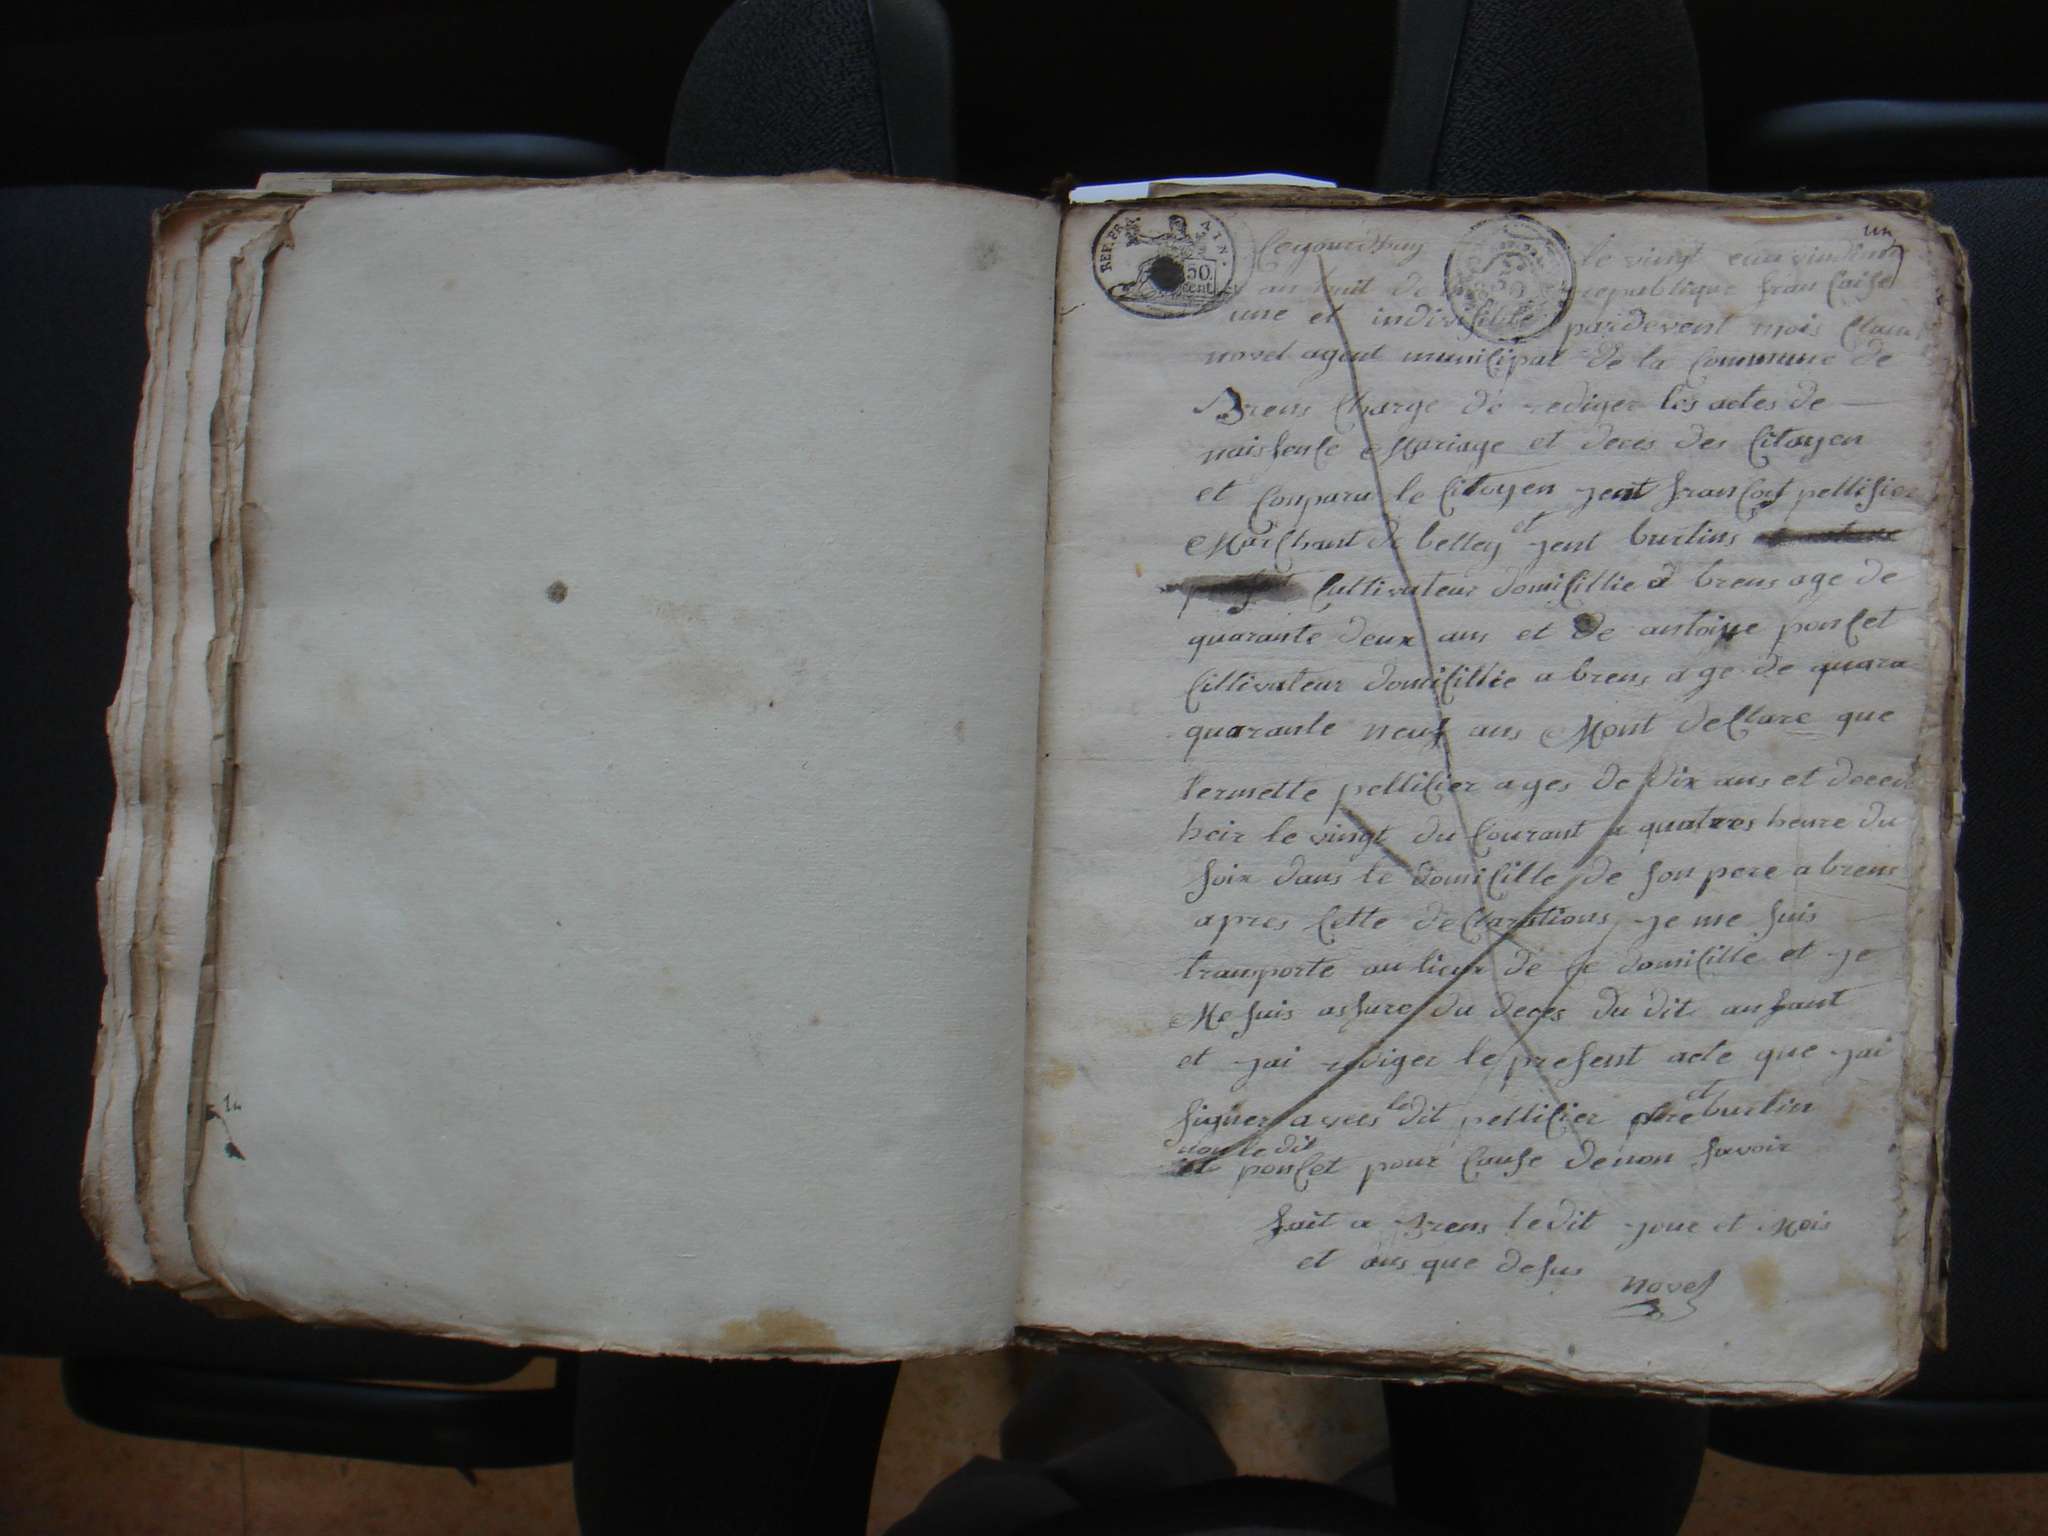 REP. FRA. AIN.
50 cent
un
Ceyourdhuy le vingt eun vindimer
an huit de la republique franCaise
une et indivisible pardevent mois Claude
novel agent muniCipal de la Commune de
Brens Charge de rediger les actes de
naissenCe Mariage et deces des Citoyen
et Conparu le Citoyen jent franCois pellisier
MarChant de belley et jent burtins
Cultivateur domiCillie a brens age de
quarante deux ans et de antoine ponCet
Cultivateur domiCillie a brens age de quara
quarante neuf ans Mont deClare que
termette pelliCier ages de dix ans et deced
heir le vingt du Courant a quatres heure du
soir dans le domiCille de son pere a brens
apres Cette deClarations je me suis
transporte au lieux de Ce domiCille et je
Me suis assure du deces du dit anfant
et jai rediger le present acte que jai
signer avecs le dit pelliCier pere et burtin
non le dit
ponCet pour Cause denon savoir
fait a Brens le dit jour et Mois
et ans que desus
novel